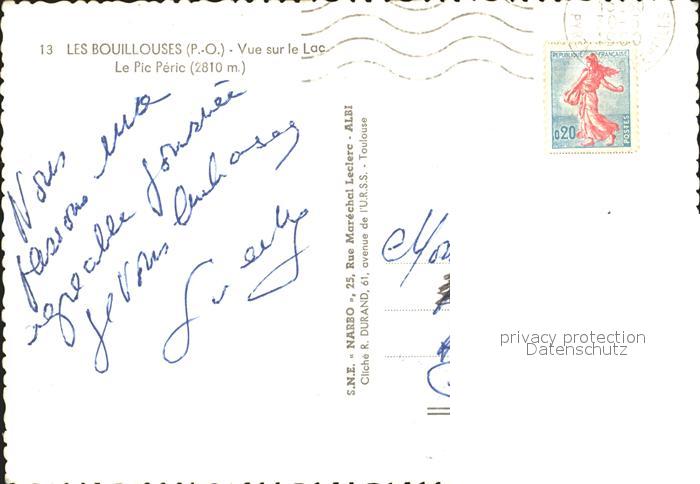 13 LES BOUILLOUSES (P.-O.) - Vue sur le Lac
Le Pic Péric (2810 m.)
REPUBLIQUE FRANÇAISE
0,20
POSTES
Nous
passons une
agréable journée
je vous embrasse
S.N.E. « NARBO », 25, Rue Maréchal Leclerc - ALBI
Cliché R. DURAND, 61, avenue de l'U.R.S.S. - Toulouse
privacy protection
Datenschutz